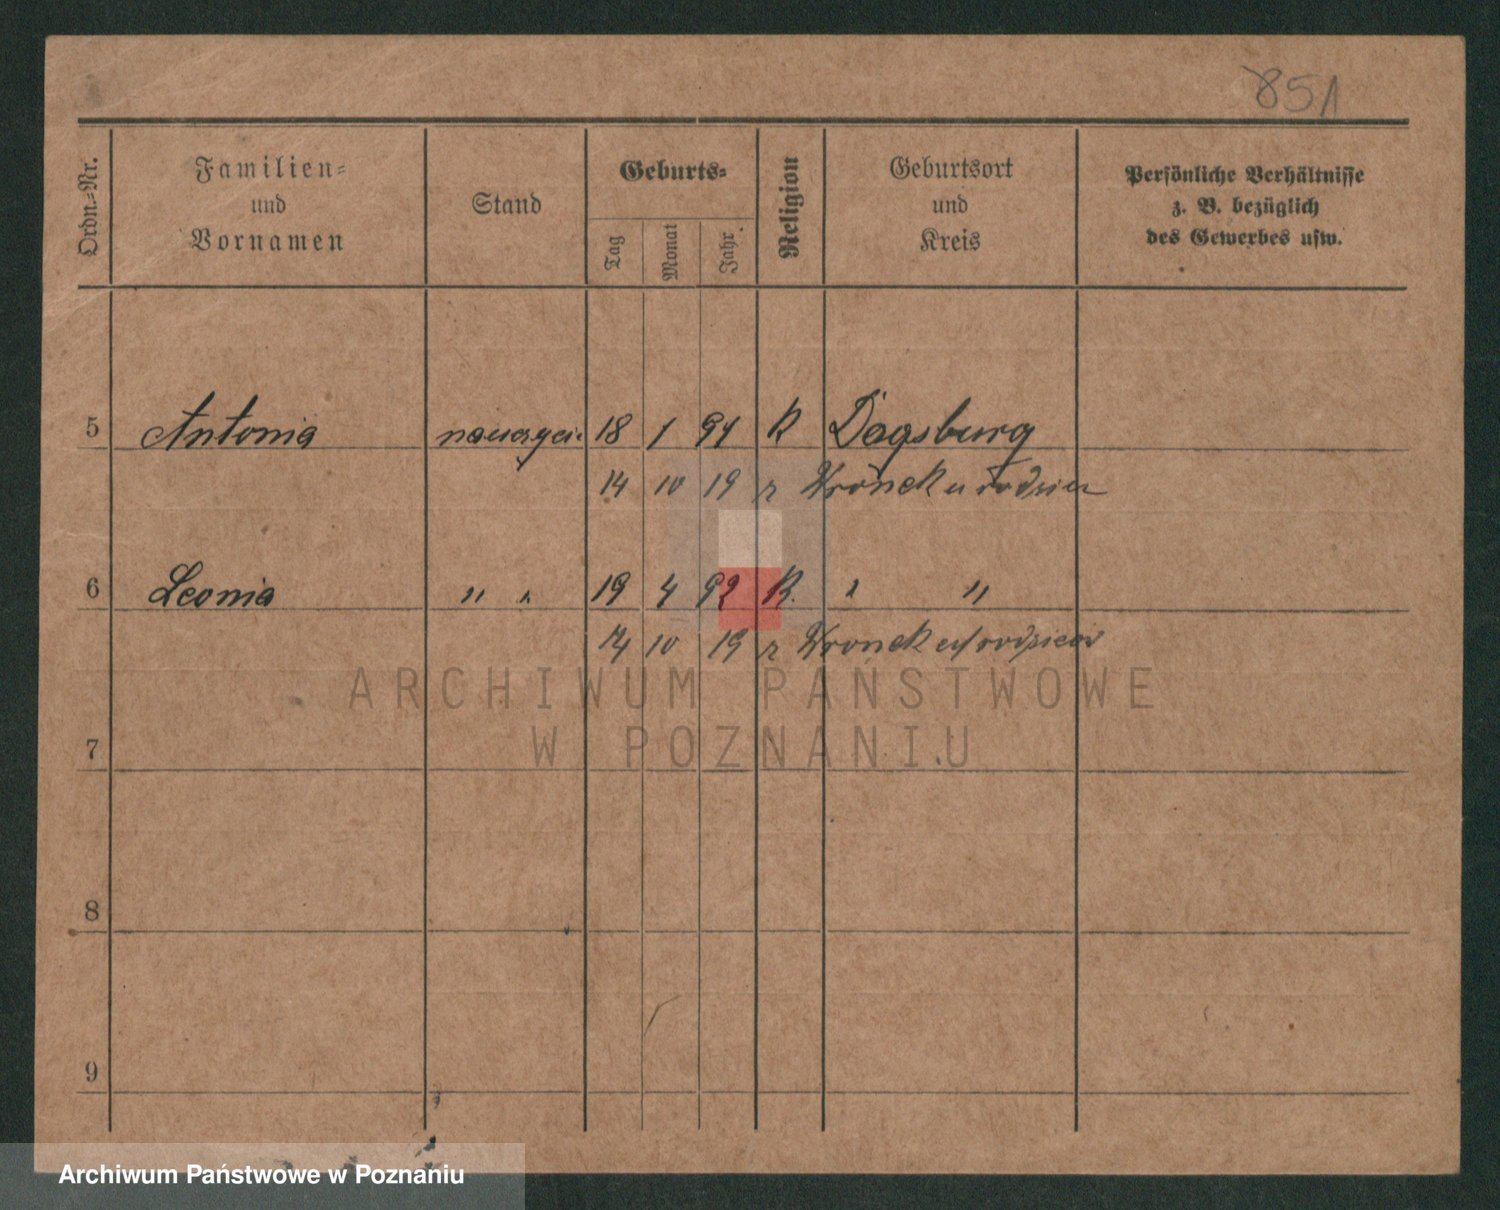 851
Ordn.-Nr.
Familien-
und
Vornamen
Stand
Geburts-
Tag
Monat
Jahr
Religion
Geburtsort
und
Kreis
Persönliche Verhältnisse
z. B. bezüglich
des Gewerbes usw.
5 Antonia 18 1 91 R Dagsburg
14 10 19 z Wronek u rodzicw
6 Leonia " " 19 4 92 R. " "
14 10 19 z Wronek
ARCHIWUM PAŃSTWOWE
W POZNANIU
7
8
9
Archiwum Państwowe w Poznaniu